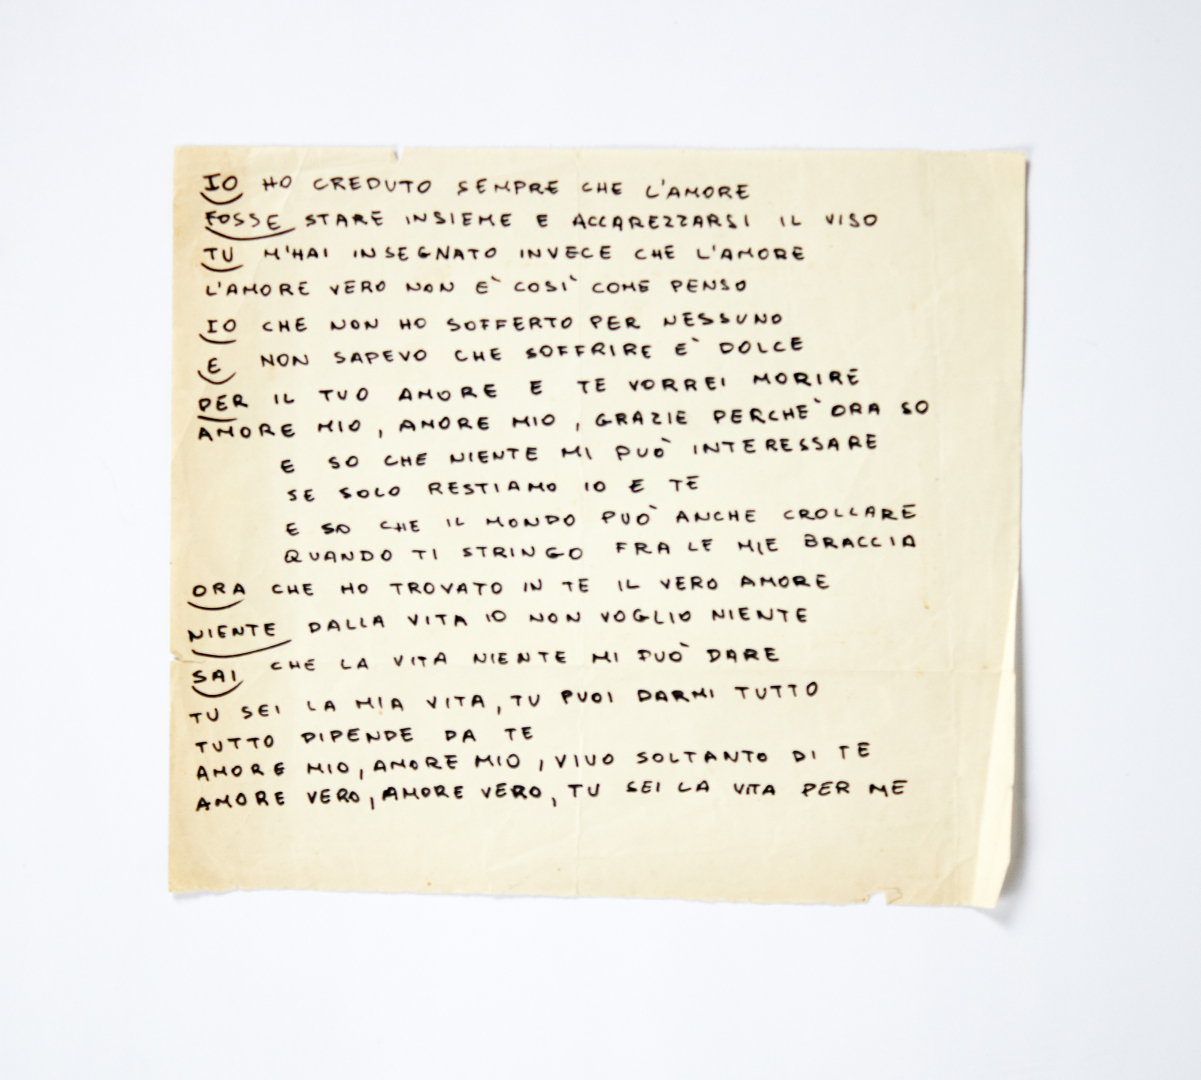 IO HO CREDUTO SEMPRE CHE L'AMORE
FOSSE STARE INSIEME E ACCAREZZARSI IL VISO
TU M'HAI INSEGNATO INVECE CHE L'AMORE
L'AMORE VERO NON E` COSI` COME PENSO
IO CHE NON HO SOFFERTO PER NESSUNO
E NON SAPEVO CHE SOFFRIRE E` DOLCE
PER IL TUO AMORE E TE VORREI MORIRE
AMORE MIO, AMORE MIO, GRAZIE PERCHE` ORA SO
E SO CHE NIENTE MI PUO` INTERESSARE
SE SOLO RESTIAMO IO E TE
E SO CHE IL MONDO PUO` ANCHE CROLLARE
QUANDO TI STRINGO FRA LE MIE BRACCIA
ORA CHE HO TROVATO IN TE IL VERO AMORE
NIENTE DALLA VITA IO NON VOGLIO NIENTE
SAI CHE LA VITA NIENTE MI PUO` DARE
TU SEI LA MIA VITA, TU PUOI DARMI TUTTO
TUTTO DIPENDE DA TE
AMORE MIO, AMORE MIO, VIVO SOLTANTO DI TE
AMORE VERO, AMORE VERO, TU SEI LA VITA PER ME